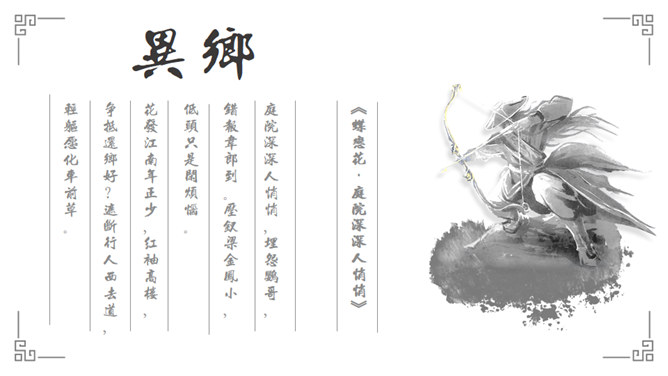 異鄉
《蝶戀花·庭院深深人悄悄》
庭院深深人悄悄,埋怨鸚哥,
錯報韋郎到。壓釵梁金鳳小,
低頭只是閑煩惱。
花發江南年正少,紅袖高樓,
爭抵還鄉好?遮斷行人西去道,
輕軀愿化車前草。